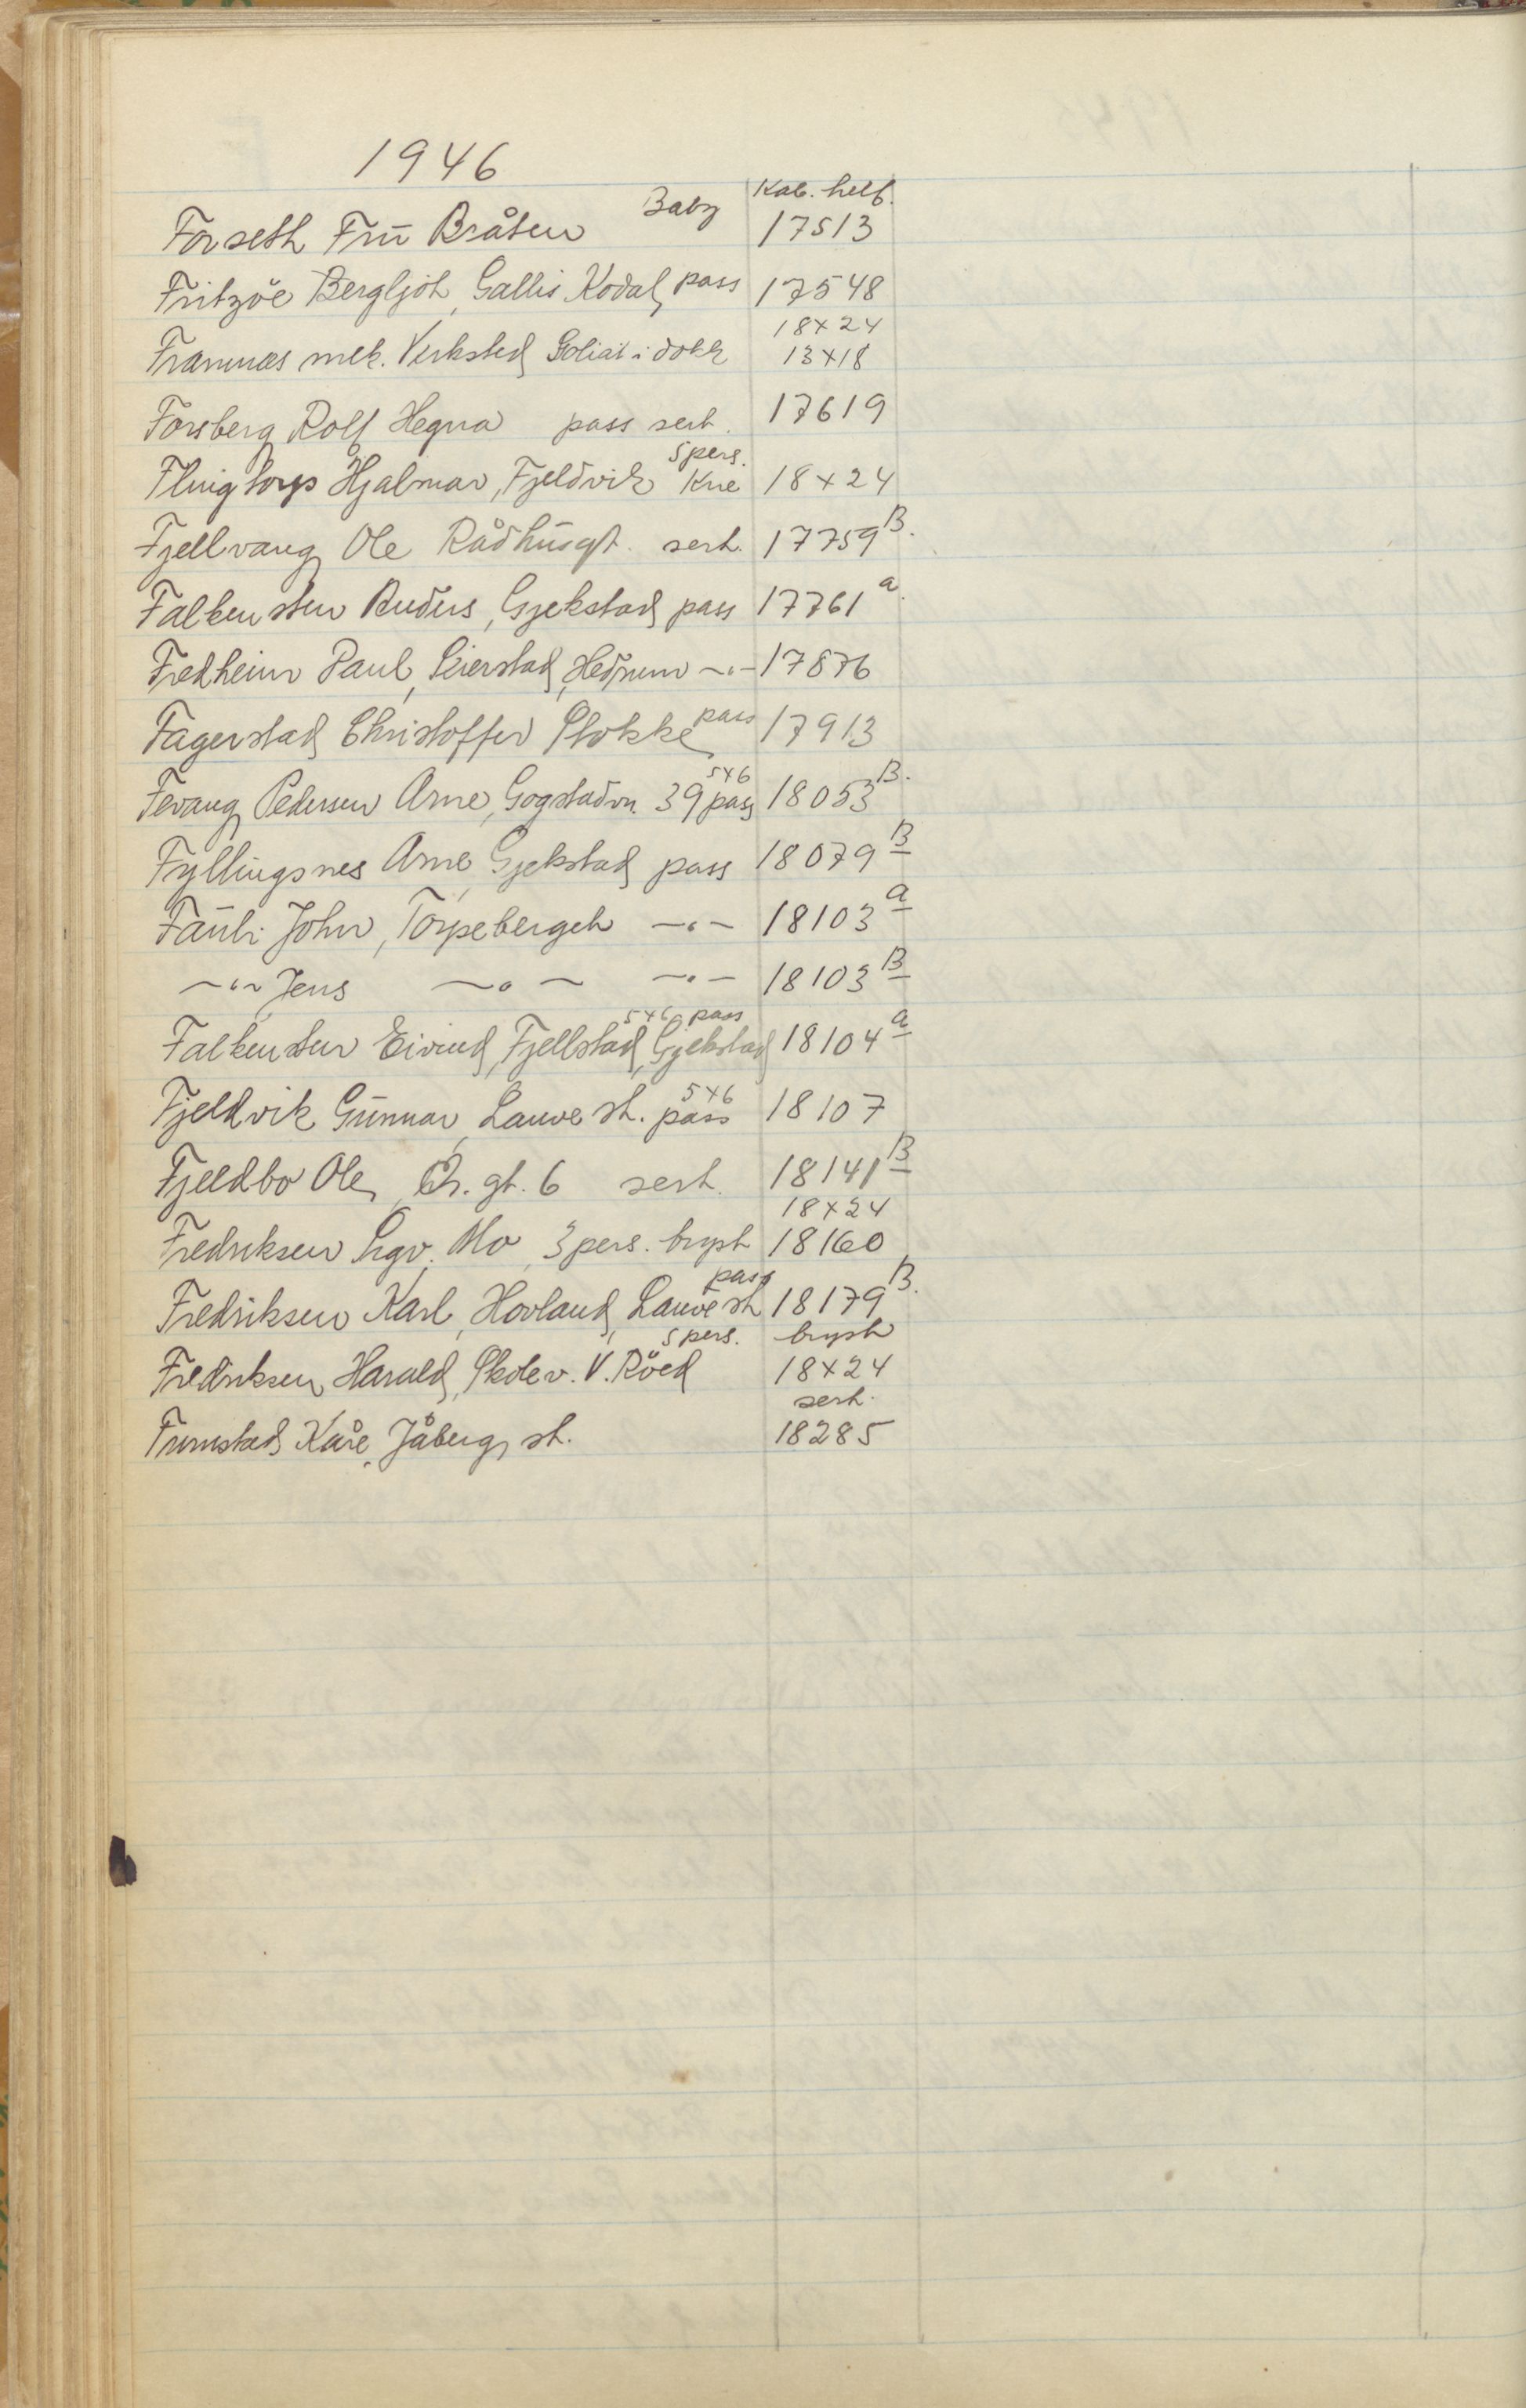 1946
Forseth Frū Bråten Baby Kab. helf. 17513
Fritzöe Bergljot, Gallis Kodal, pass 17548
Framnæs mek. Verksted Goliat i dokk 18x24 13x18
Forsberg Rolf Hegna pass sert. 17619
Flingtorp Hjalmar, Fjeldvik 5 pers. Kne 18x24
Fjellvang Ole Rådhūsgt. sert. 17759 B.
Falkensten Anders, Gjekstad pass 17761 a.
Fredheim Paul, Seierstad, Hedrum -"- 17876
Fagerstad Christoffer Stokke pass 17913
Fevang Pedersen Arne, Gogstadvn. 39 5x6 pass 18053 B.
Fyllingsnes Arne, Gjekstad pass 18079 B
Faūli John, Torpeberget -"- 18103 a
-"- Jens -"- -"- 18103 B
Falkensten Eivind, Fjellstad, Gjekstad 5x6 pass 18104 a
Fjeldvik Gūnnar, Lauve st. 5x6 pass 18107
Fjeldbo Ole, Ch. gt. 6 sert. 18141 B
Fredriksen Sigv. Mo, 3 pers. bryst 18x24 18160
Fredriksen Karl, Hovland, Lauve st pass 18179 B.
Fredriksen Harald, Skolev. V. Röed 5 pers. bryst 18x24
Frumstad Kåre, Jåberg st. sert. 18285